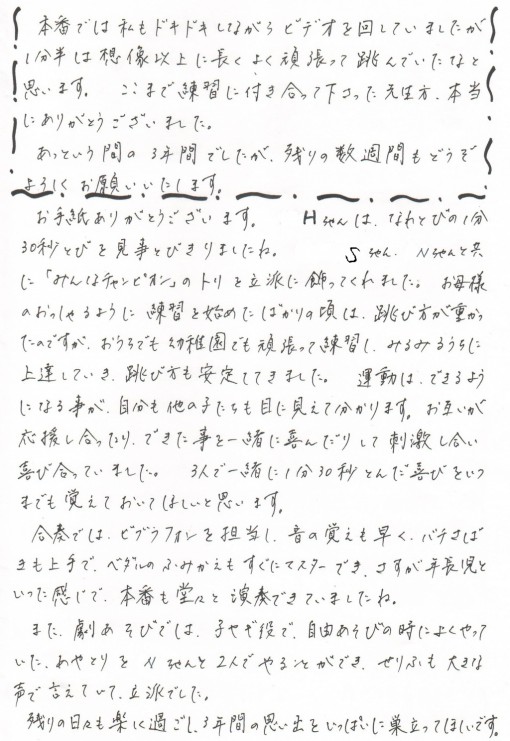 本番では私もドキドキしながらビデオを回していましたが
1分半は想像以上に長くよく頑張って跳んでいたなと
思います。 ここまで練習に付き合って下さった先生方、本当
にありがとうございました。
あっという間の3年間でしたが、残りの数週間もどうぞ
よろしくお願いいたします。
お手紙ありがとうございます。 Hちゃんは、なわとびの1分
30秒とびを見事とびきりましたね。 Sちゃん、Nちゃんと共
に「みんなチャンピオン」のトリを立派に飾ってくれました。お母様
のおっしゃるように練習を始めたばかりの頃は、跳び方が重かっ
たのですが、おうちでも幼稚園でも頑張って練習し、みるみるうちに
上達していき、跳び方も安定してきました。 運動は、できるよう
になる事が、自分も他の子たちも目に見えて分かります。お互いが
応援し合ったり、できた事を一緒に喜んだりして刺激し合い
喜び合っていました。 3人で一緒に1分30秒とんだ喜びをいつ
までも覚えておいてほしいと思います。
合奏では、ビブラフォンを担当し、音の覚えも早く、バチさば
きも上手で、ペダルのふみかえもすぐにマスターでき、さすが年長児と
いった感じで、本番も堂々と演奏できていましたね。
また、劇あそびでは、子ヤギ役で、自由あそびの時によくやって
いた、あやとりをNちゃんと2人でやることができ、せりふも大きな
声で言えていて、立派でした。
残りの日々も楽しく過ごし、3年間の思い出をいっぱいに巣立ってほしいです。